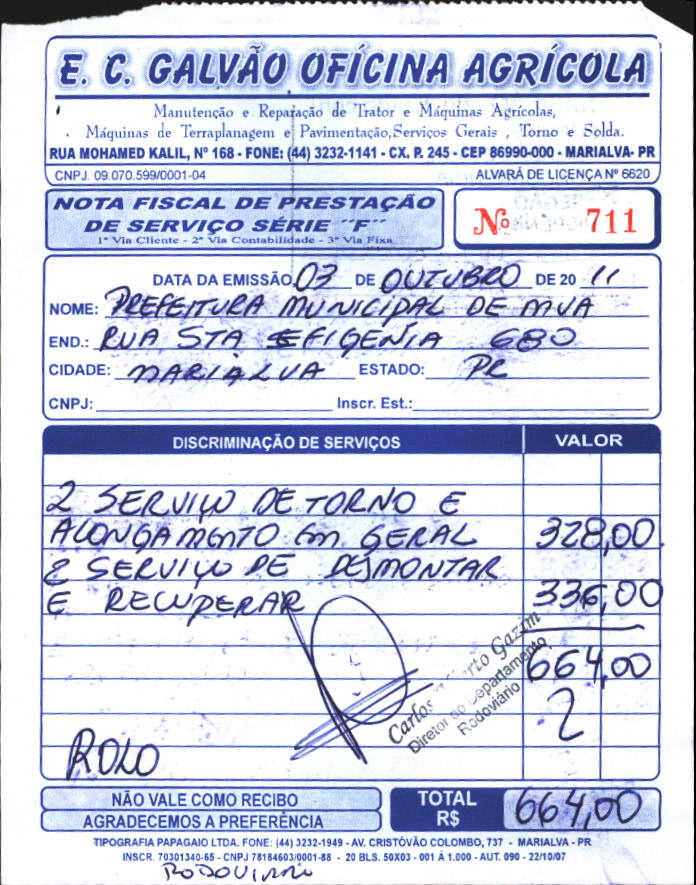 E. C. GALVÃO OFÍCINA AGRÍCOLA
Manutenção e Reparação de Trator e Máquinas Agrícolas,
Máquinas de Terraplanagem e Pavimentação, Serviços Gerais , Torno e Solda.
RUA MOHAMED KALIL, Nº 168 - FONE: (44) 3232-1141 - CX. P. 245 - CEP 86990-000 - MARIALVA- PR
CNPJ. 09.070.599/0001-04 ALVARÁ DE LICENÇA Nº 6620
NOTA FISCAL DE PRESTAÇÃO
DE SERVIÇO SÉRIE ´´F´´
1ª Via Cliente - 2ª Via Contabilidade - 3ª Via Fixa
Nº 711
DATA DA EMISSÃO 03 DE OUTUBRO DE 20 11
NOME: PREFEITURA MUNICIPAL DE MVA
END.: RUA STA EFIGENIA 680
CIDADE: MARIALVA ESTADO: PR
CNPJ: Inscr. Est.:
DISCRIMINAÇÃO DE SERVIÇOS VALOR
2 SERVIÇO DE TORNO E
ALONGAMENTO EM GERAL 328,00
2 SERVIÇO DE DESMONTAR
E RECUPERAR 336,00
664,00
2
Carlos Gazim
Diretor do Departamento
Rodoviário
ROLO
NÃO VALE COMO RECIBO
AGRADECEMOS A PREFERÊNCIA
TOTAL R$ 664,00
TIPOGRAFIA PAPAGAIO LTDA. FONE: (44) 3232-1949 - AV. CRISTÓVÃO COLOMBO, 737 - MARIALVA - PR
INSCR. 70301340-65 - CNPJ 78184603/0001-88 - 20 BLS. 50X03 - 001 À 1.000 - AUT. 090 - 22/10/07
RODOVIÁRIO